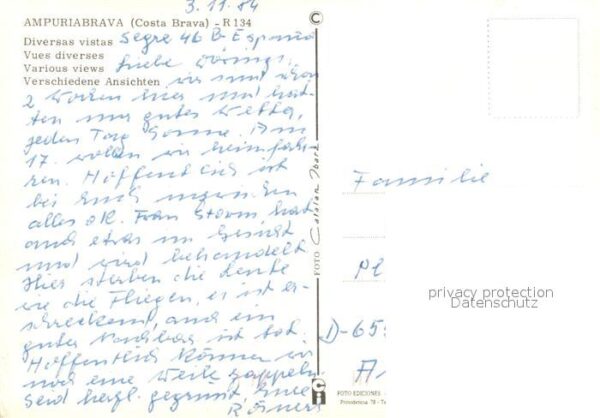 3.11.84
AMPURIABRAVA (Costa Brava) - R 134
Segre 46 B España
Diversas vistas
Vues diverses
Various views
Verschiedene Ansichten
Liebe
wir sind schon
2 Wochen hier und hat-
ten nur gutes Wetter,
jeden Tag Sonne. Am
17. wollen wir heimfah-
ren. Hoffentlich ist
bei Euch inzwischen
alles ok. Frau Storm hat
auch etwas im Gesicht
und wird behandelt
Hier sterben die Leute
wie die Fliegen, es ist er-
schreckend, auch ein
guter Nachbar ist tot.
Hoffentlich können wir
noch eine Weile zappeln
Seid herzl. gegrüsst, Eure
C
FOTO Catalan Ibarz
Familie
Pl
privacy protection
Datenschutz
D-65
A
FOTO EDICIONES -
Providencia 78 - Te